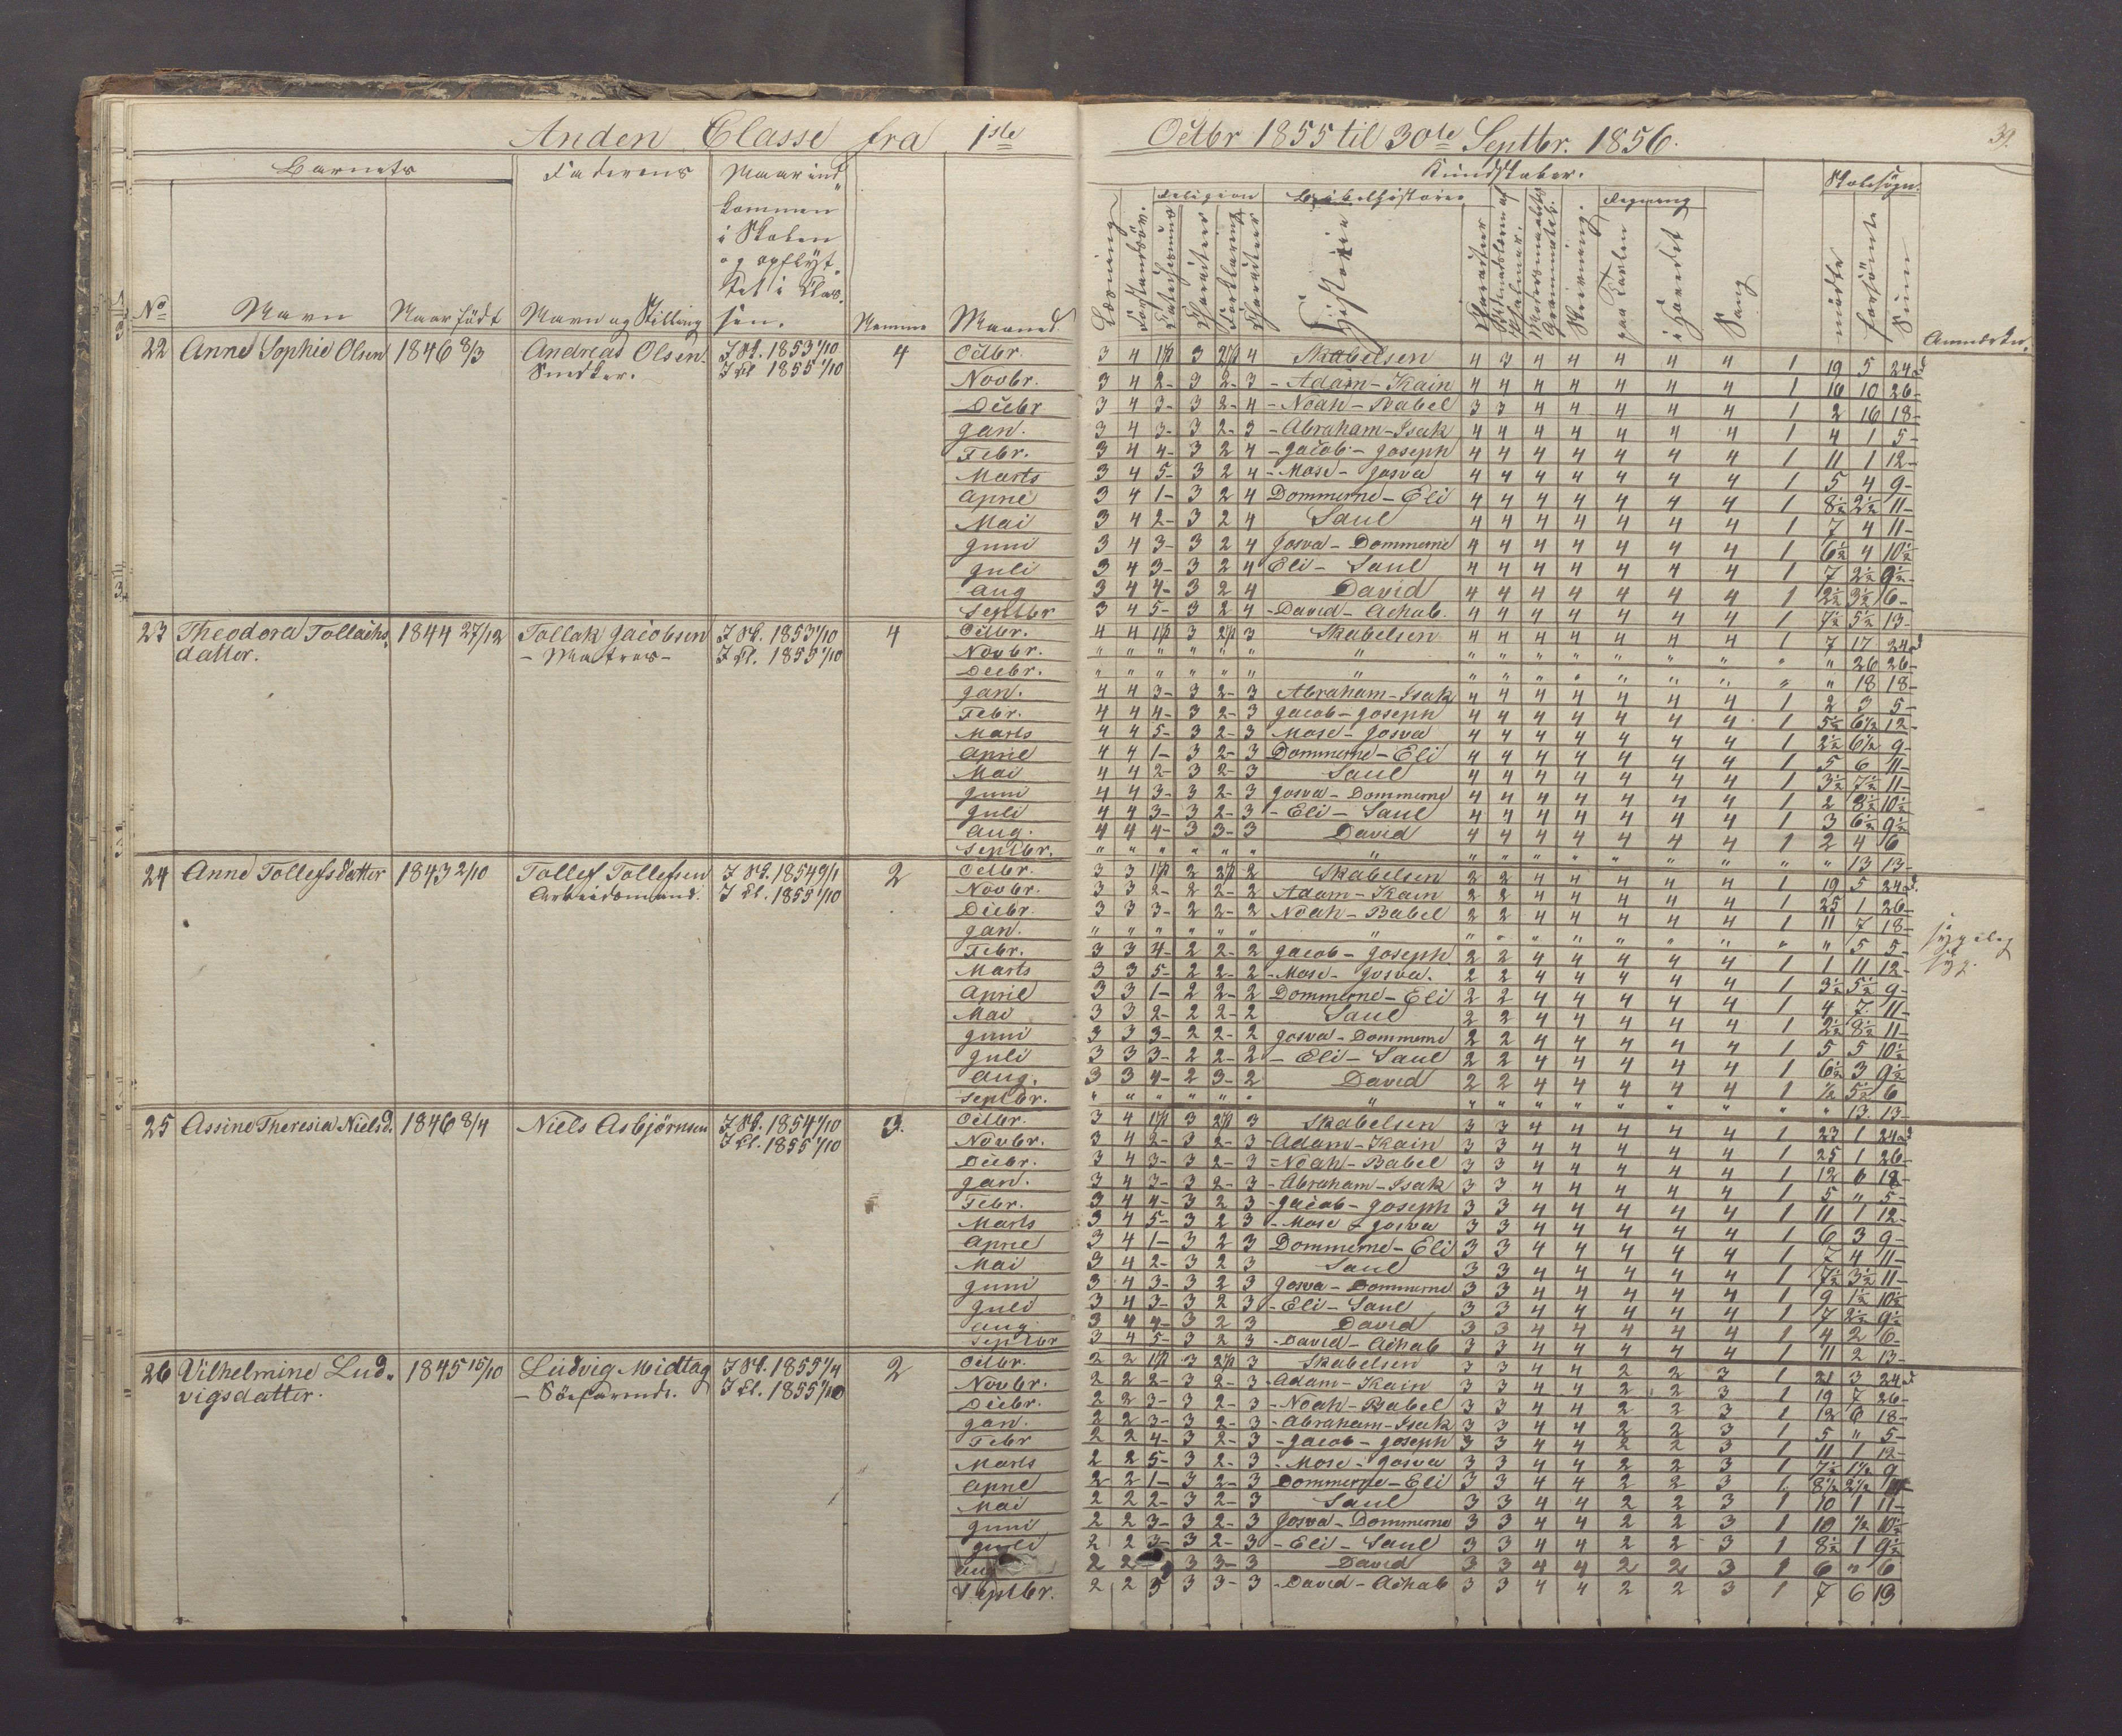 Anden Classe fra 1ste Octbr 1855 til 30te Septbr. 1856.
39.
Barnets
Faderens
Naar ind-
kommen
i Skolen
og opflyt-
tet i Clas-
sen.
No
Navn
Naar født
Navn og Stilling
Nemme
Maaned
Kundskaber.
Skolesøgn.
Religion
Bibelhistorie
Regning
Læsning
Historie
Skrivning.
paa Tavlen
i Hovedet
Sang
mødte
forsømte
Sum
Anmærkn.
22 Anne Sophie Olsen 1846 8/3 Andreas Olsen. I Sk. 1853 1/10 4
Snedker. I Cl. 1855 1/10
Octbr. 3 4 3 4 Skabelsen 4 3 4 4 4 4 4 1 19 5 24
Novbr. 3 4 2- 3 2- 3 - Adam - Kain 4 4 4 4 4 4 4 1 16 10 26-
Decbr 3 4 3- 3 2- 4 - Noah - Babel 3 3 4 4 4 4 4 1 2 16 18-
Jan. 3 4 3- 3 2- 3 - Abraham - Isak 4 4 4 4 4 4 4 1 4 1 5-
Febr. 3 4 4- 3 2 4 - Jacob - Joseph 4 4 4 4 4 4 4 1 11 1 12-
Marts 3 4 5- 3 2 4 - Mose - Josva 4 4 4 4 4 4 4 1 5 4 9-
April 3 4 1- 3 2 4 Dommerne - Eli 4 4 4 4 4 4 4 1 8½ 2½ 11-
Mai 3 4 2- 3 2 4 Saul 4 4 4 4 4 4 4 1 7 4 11-
Juni 3 4 3- 3 2 4 Josva - Dommerne 4 4 4 4 4 4 4 1 6½ 4 10½
Juli 3 4 3- 3 2 4 Eli - Saul 4 4 4 4 4 4 4 1 7 2½ 9½-
Aug 3 4 4- 3 2 4 David 4 4 4 4 4 4 4 1 2½ 3½ 6-
Septbr 3 4 5- 3 2 4 - David - Achab. 4 4 4 4 4 4 4 1 7½ 5½ 13-
23 Theodora Tollachs- 1844 27/12 Tollak Jacobsen I Sk. 1853 1/10 4
datter. - Matros - I Cl. 1855 1/10
Octbr. 4 4 3 3 Skabelsen 4 4 4 4 4 4 4 1 7 17 24
Novbr. " " " " " " " " " " " " " " " " 26 26-
Decbr. " " " " " " " " " " " " " " " " 18 18-
Jan. 4 4 3- 3 2- 3 Abraham - Isak 4 4 4 4 4 4 4 1 2 3 5-
Febr. 4 4 4- 3 2- 3 Jacob - Joseph 4 4 4 4 4 4 4 1 5½ 6½ 12-
Marts 4 4 5- 3 2- 3 Mose - Josva 4 4 4 4 4 4 4 1 2½ 6½ 9-
April 4 4 1- 3 2- 3 Dommerne - Eli 4 4 4 4 4 4 4 1 5 6 11-
Mai 4 4 2- 3 2- 3 Saul 4 4 4 4 4 4 4 1 3½ 7½ 11-
Juni 4 4 3- 3 2- 3 Josva - Dommerne 4 4 4 4 4 4 4 1 2 8½ 10½
Juli 4 4 3- 3 2- 3 - Eli - Saul 4 4 4 4 4 4 4 1 3 6½ 9½
Aug. 4 4 4- 3 3- 3 David 4 4 4 4 4 4 4 1 2 4 6
Septbr. " " " " " " " " " " " " " " " " 13 13-
24 Anne Tollefsdatter 1843 2/10 Tollef Tollefsen I Sk. 1854 9/1 2
Arbeidsmand. I Cl. 1855 1/10
Octbr. 3 3 2 2 Skabelsen 2 2 4 4 4 4 4 1 19 5 24
Novbr. 3 3 2- 2 2- 2 Adam - Kain 2 2 4 4 4 4 4 1 25 1 26-
Decbr. 3 3 3- 2 2- 2 Noah - Babel 2 2 4 4 4 4 4 1 11 7 18-
Jan. " " " " " " " " " " " " " " " " 5 5- sygelig
Febr. 3 3 4- 2 2- 2 Jacob - Joseph 2 2 4 4 4 4 4 1 1 11 12- syg.
Marts 3 3 5- 2 2- 2 - Mose - Josva. 2 2 4 4 4 4 4 1 3½ 5½ 9-
April 3 3 1- 2 2- 2 Dommerne - Eli 2 2 4 4 4 4 4 1 4 7 11-
Mai 3 3 2- 2 2- 2 Saul 2 2 4 4 4 4 4 1 2½ 8½ 11-
Juni 3 3 3- 2 2- 2 Josva - Dommerne 2 2 4 4 4 4 4 1 5 5 10½
Juli 3 3 3- 2 2- 2 - Eli - Saul 2 2 4 4 4 4 4 1 6½ 3 9½
Aug. 3 3 4- 2 3- 2 David 2 2 4 4 4 4 4 1 ½ 5½ 6
Septbr. " " " " " " " " " " " " " " " " 13 13-
25 Assine Theresia Nielsd. 1846 8/4 Niels Asbjørnsen I Sk. 1854 1/10 3.
I Cl. 1855 1/10
Octbr. 3 4 3 3 Skabelsen 3 3 4 4 4 4 4 1 23 1 24
Novbr. 3 4 2- 3 2- 3 - Adam - Kain 3 3 4 4 4 4 4 1 25 1 26-
Decbr. 3 4 3- 3 2- 3 - Noah - Babel 3 3 4 4 4 4 4 1 12 6 18-
Jan. 3 4 3- 3 2- 3 - Abraham - Isak 3 3 4 4 4 4 4 1 5 " 5-
Febr. 3 4 4- 3 2 3 - Jacob - Joseph 3 3 4 4 4 4 4 1 11 1 12-
Marts 3 4 5- 3 2 3 - Mose - Josva 3 3 4 4 4 4 4 1 6 3 9-
April 3 4 1- 3 2 3 Dommerne - Eli 3 3 4 4 4 4 4 1 7 4 11-
Mai 3 4 2- 3 2 3 Saul 3 3 4 4 4 4 4 1 7½ 3½ 11-
Juni 3 4 3- 3 2 3 Josva - Dommerne 3 3 4 4 4 4 4 1 9 1½ 10½
Juli 3 4 3- 3 2 3 - Eli - Saul 3 3 4 4 4 4 4 1 7 2½ 9½
Aug. 3 4 4- 3 2 3 David 3 3 4 4 4 4 4 1 4 2 6-
Septbr 3 4 5- 3 2 3 - David - Achab 3 3 4 4 4 4 4 1 11 2 13-
26 Vilhelmine Lud- 1845 15/10 Ludvig Midtag I Sk. 1855 1/4 2
vigsdatter. - Söefarende. I Cl. 1855 1/10
Octbr. 2 2 3 3 Skabelsen 3 3 4 4 2 2 3 1 21 3 24
Novbr. 2 2 2- 3 2- 3 - Adam - Kain 3 3 4 4 2 2 3 1 19 7 26-
Decbr. 2 2 3- 3 2- 3 - Noah - Babel 3 3 4 4 2 2 3 1 12 6 18-
Jan. 2 2 3- 3 2- 3 - Abraham - Isak 3 3 4 4 2 2 3 1 5 " 5-
Febr 2 2 4- 3 2- 3 - Jacob - Joseph 3 3 4 4 2 2 3 1 11 1 12-
Marts 2 2 5- 3 2- 3 - Mose - Josva 3 3 4 4 2 2 3 1 7½ 1½ 9
April 2 2 1- 3 2- 3 Dommerne - Eli 3 3 4 4 2 2 3 1 8½ 2½ 11
Mai 2 2 2- 3 2- 3 Saul 3 3 4 4 2 2 3 1 10 1 11-
Juni 2 2 3- 3 2- 3 Josva - Dommerne 3 3 4 4 2 2 3 1 10 ½ 10½
Juli 2 2 3- 3 2- 3 - Eli - Saul 3 3 4 4 2 2 3 1 8½ 1 9½
Aug 2 2 3 3- 3 David 3 3 4 4 2 2 3 1 6 " 6
Septbr. 2 2 5 3 3- 3 - David - Achab 3 3 4 4 2 2 3 1 7 6 13